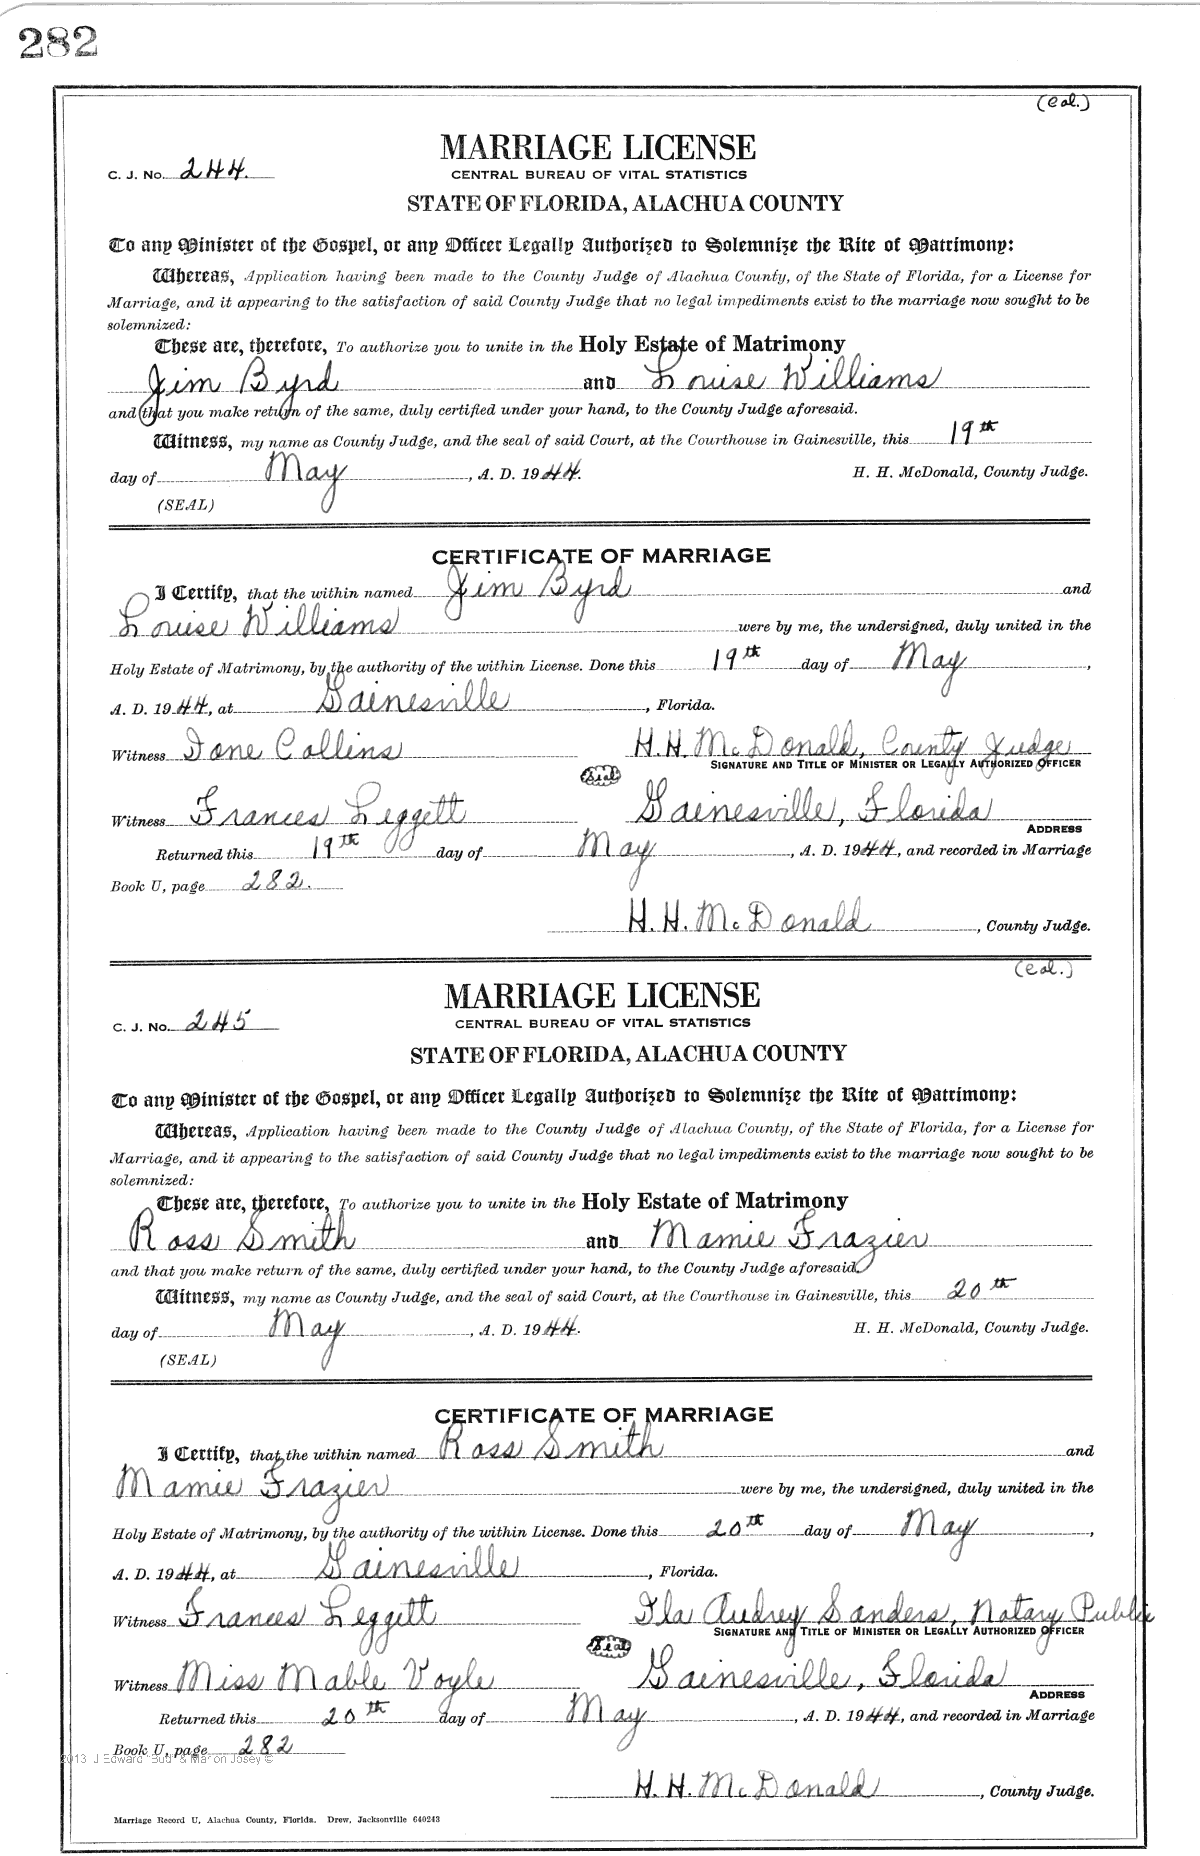 282
(Col.)
MARRIAGE LICENSE
C. J. No. 244.
CENTRAL BUREAU OF VITAL STATISTICS
STATE OF FLORIDA, ALACHUA COUNTY
To any Minister of the Gospel, or any Officer Legally Authorized to Solemnize the Rite of Matrimony:
Whereas, Application having been made to the County Judge of Alachua County, of the State of Florida, for a License for
Marriage, and it appearing to the satisfaction of said County Judge that no legal impediments exist to the marriage now sought to be
solemnized:
These are, therefore, To authorize you to unite in the Holy Estate of Matrimony
Jim Byrd and Louise Williams
and that you make return of the same, duly certified under your hand, to the County Judge aforesaid.
Witness, my name as County Judge, and the seal of said Court, at the Courthouse in Gainesville, this 19th
day of May, A. D. 1944. H. H. McDonald, County Judge.
(SEAL)
CERTIFICATE OF MARRIAGE
I Certify, that the within named Jim Byrd and
Louise Williams were by me, the undersigned, duly united in the
Holy Estate of Matrimony, by the authority of the within License. Done this 19th day of May,
A. D. 1944, at Gainesville, Florida.
Witness Ione Collins H. H. McDonald, County Judge
SIGNATURE AND TITLE OF MINISTER OR LEGALLY AUTHORIZED OFFICER
Seal
Witness Frances Leggett Gainesville, Florida
ADDRESS
Returned this 19th day of May, A. D. 1944, and recorded in Marriage
Book U, page 282.
H. H. McDonald, County Judge.
(Col.)
MARRIAGE LICENSE
C. J. No. 245
CENTRAL BUREAU OF VITAL STATISTICS
STATE OF FLORIDA, ALACHUA COUNTY
To any Minister of the Gospel, or any Officer Legally Authorized to Solemnize the Rite of Matrimony:
Whereas, Application having been made to the County Judge of Alachua County, of the State of Florida, for a License for
Marriage, and it appearing to the satisfaction of said County Judge that no legal impediments exist to the marriage now sought to be
solemnized:
These are, therefore, To authorize you to unite in the Holy Estate of Matrimony
Ross Smith and Mamie Frazier
and that you make return of the same, duly certified under your hand, to the County Judge aforesaid.
Witness, my name as County Judge, and the seal of said Court, at the Courthouse in Gainesville, this 20th
day of May, A. D. 1944. H. H. McDonald, County Judge.
(SEAL)
CERTIFICATE OF MARRIAGE
I Certify, that the within named Ross Smith and
Mamie Frazier were by me, the undersigned, duly united in the
Holy Estate of Matrimony, by the authority of the within License. Done this 20th day of May,
A. D. 1944, at Gainesville, Florida.
Witness Frances Leggett Ila Audrey Sanders, Notary Public
SIGNATURE AND TITLE OF MINISTER OR LEGALLY AUTHORIZED OFFICER
Seal
Witness Miss Mable Voyle Gainesville, Florida
ADDRESS
Returned this 20th day of May, A. D. 1944, and recorded in Marriage
Book U, page 282
2013 J Edward "Bud" & Marion Josey ©
H. H. McDonald, County Judge.
Marriage Record U, Alachua County, Florida. Drew, Jacksonville 640243